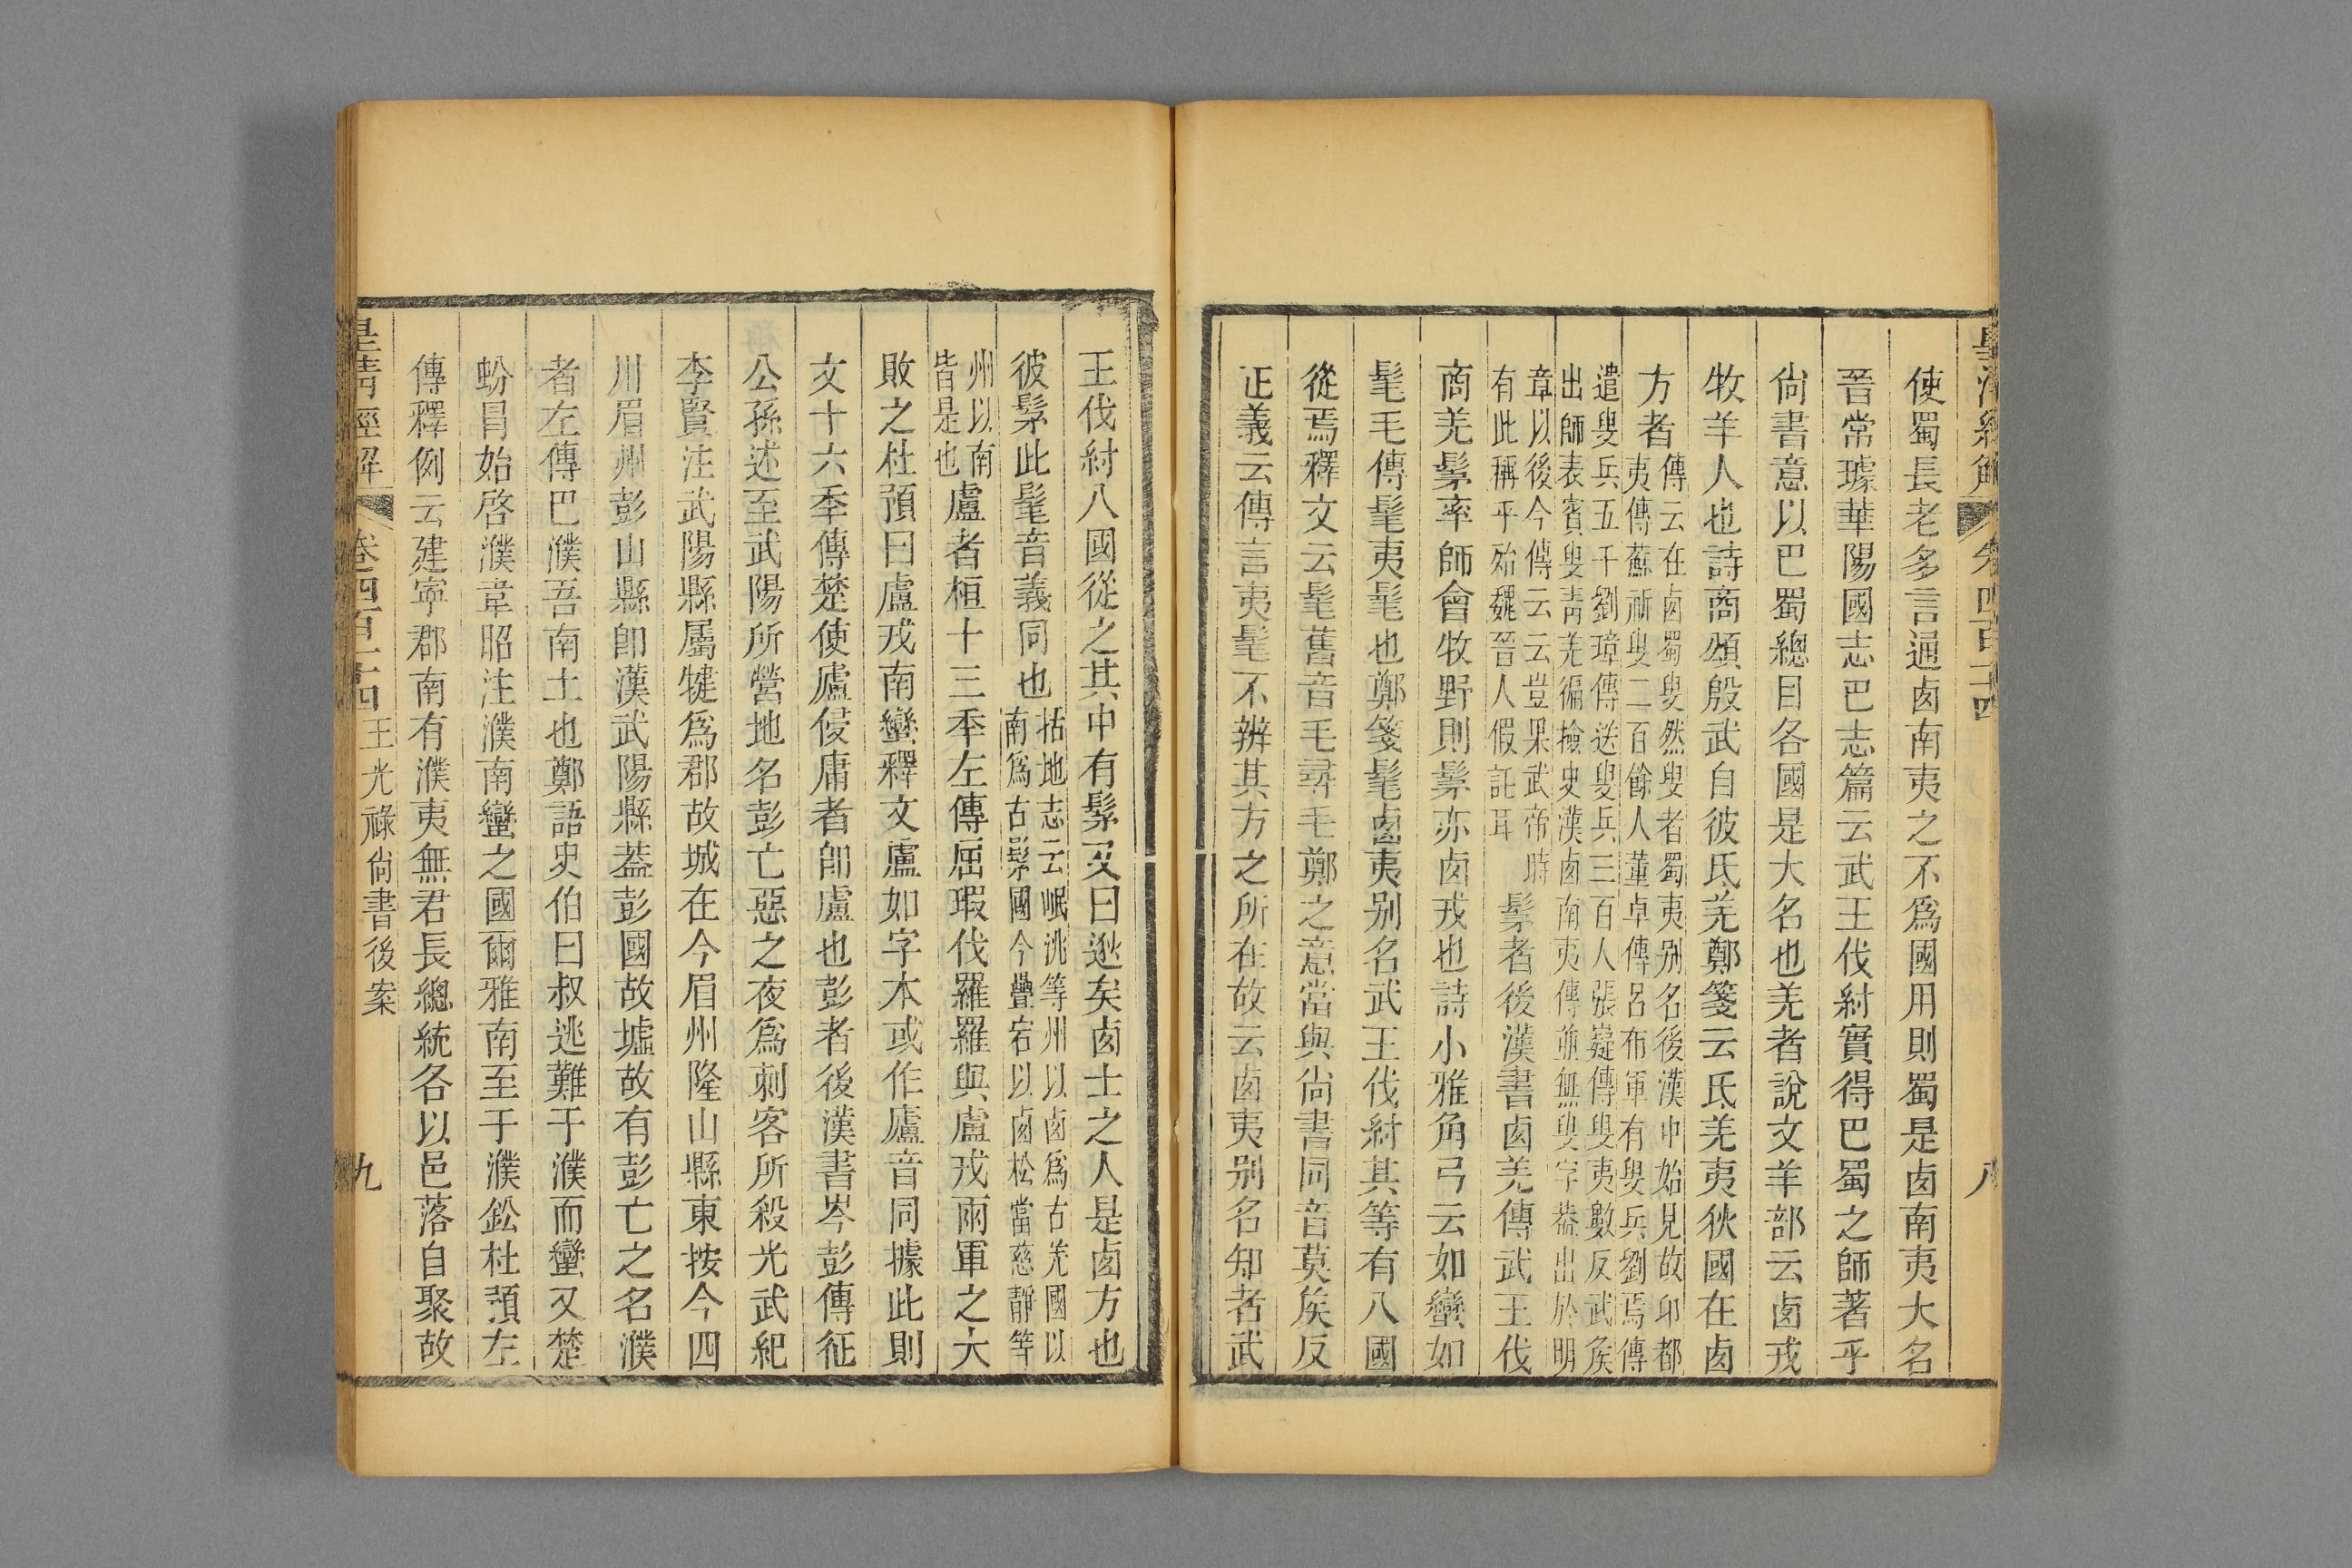 使蜀長老多言通卤南夷之不爲國用則蜀是卤南夷大名
晉常璩華陽國志巴志篇云武王伐紂實得巴蜀之師著乎
尙書意以巴蜀總目各國是大名也羌者說文羊部云卤戎
牧羊人也詩商頌殷武自彼氐羌鄭箋云氐羌夷狄國在卤
方者
傳云在卤蜀叟然叟者蜀夷别名後漢中始見故卭都
夷傳蘇祈叟二百餘人董卓傳呂布軍有叟兵劉焉傳
遣叟兵五千劉璋傳送叟兵三百人張嶷傳叟夷數反武矦
出師表賓叟靑羌徧檢史漢卤南夷傳並無叟字葢出於明
章以後今傳云云豈果武帝時
有此稱乎殆魏晉人假託耳
髳者後漢書卤羌傳武王伐
商羌髳率師會牧野則髳亦卤戎也詩小雅角弓云如蠻如
髦毛傳髦夷髦也鄭箋髦卤夷别名武王伐紂其等有八國
從焉釋文云髦舊音毛尋毛鄭之意當與尙書同音莫矦反
正義云傳言夷髦不辨其方之所在故云卤夷别名知者武
王伐紂八國從之其中有髳又曰逖矣卤土之人是卤方也
彼髳此髦音義同也
括地志云岷洮等州以卤爲古羌國以
南爲古髳國今疊宕以卤松當慈靜等
州以南
皆是也
盧者桓十三季左傳屈瑕伐羅羅與盧戎兩軍之大
敗之杜預曰盧戎南蠻釋文盧如字本或作廬音同據此則
文十六季傳楚使廬侵庸者卽盧也彭者後漢書岑彭傳征
公孫述至武陽所營地名彭亡惡之夜爲刺客所殺光武紀
李賢注武陽縣屬犍爲郡故城在今眉州隆山縣東按今四
川眉州彭山縣卽漢武陽縣葢彭國故墟故有彭亡之名濮
者左傳巴濮吾南土也鄭語史伯曰叔逃難于濮而蠻又楚
蚡冒始啓濮韋昭注濮南蠻之國爾雅南至于濮鈆杜預左
傳釋例云建寧郡南有濮夷無君長總統各以邑落自聚故
皇淸經解 卷四百二十四 王光祿尙書後案 九